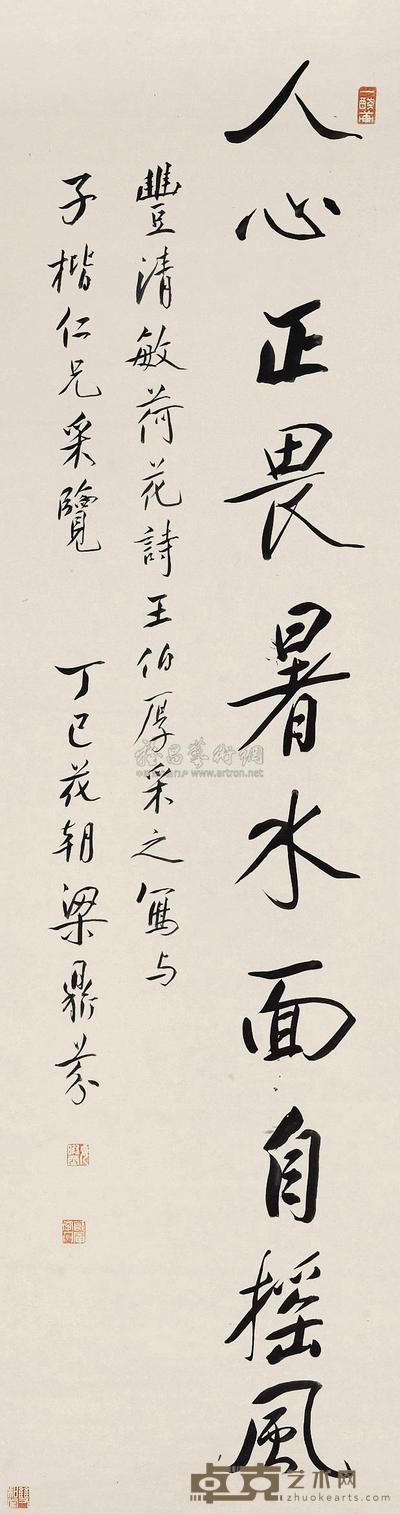 人心正畏暑水面自搖風
豐清敏荷花詩王伯厚采之寫与
子楷仁兄采覽 丁巳花朝梁鼎芬
雅昌藝術網
www.artron.net
卓克艺术网
zhuokearts.com